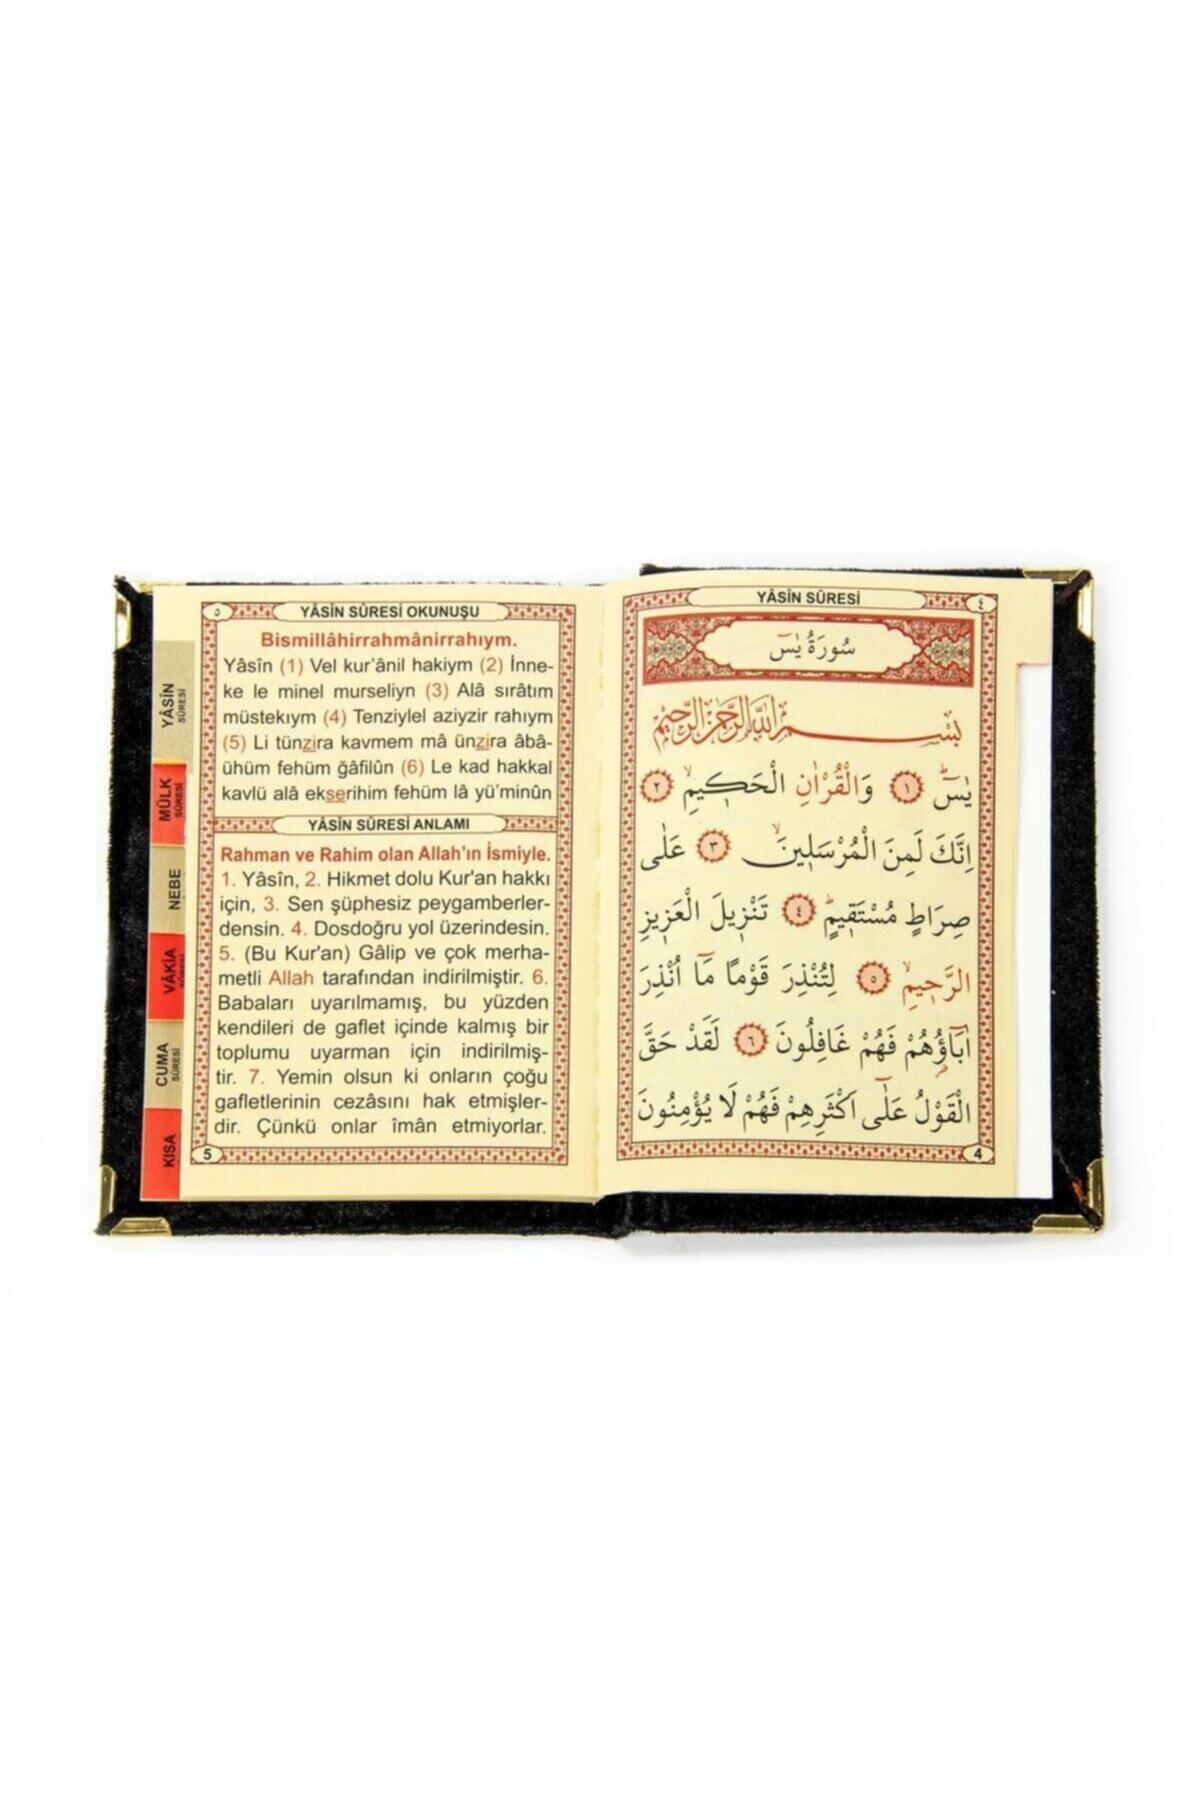 YÂSÎN SÛRESİ
٤
سُورَةُ يٰسٓ
بِسْــــمِ اللّٰهِ الرَّحْمٰنِ الرَّحِيمِ
يٰسٓۜ ﴿١﴾ وَالْقُرْاٰنِ الْحَكٖيمِۙ ﴿٢﴾
اِنَّكَ لَمِنَ الْمُرْسَلٖينَۙ ﴿٣﴾ عَلٰى
صِرَاطٍ مُسْتَقٖيمٍۜ ﴿٤﴾ تَنْزٖيلَ الْعَزٖيزِ
الرَّحٖيمِۙ ﴿٥﴾ لِتُنْذِرَ قَوْمًا مَٓا اُنْذِرَ
اٰبَٓاؤُ۬هُمْ فَهُمْ غَافِلُونَ ﴿٦﴾ لَقَدْ حَقَّ
الْقَوْلُ عَلٰٓى اَكْثَرِهِمْ فَهُمْ لَا يُؤْمِنُونَ
4
٥
YÂSÎN SÛRESİ OKUNUŞU
Bismillâhirrahmânirrahıym.
Yâsîn (1) Vel kur’ânil hakiym (2) İnne-
ke le minel murseliyn (3) Alâ sırâtım
müstekıym (4) Tenziylel aziyzir rahıym
(5) Li tünzira kavmem mâ ünzira âbâ-
ühüm fehüm ğâfilûn (6) Le kad hakkal
kavlü alâ ekserihim fehüm lâ yü’minûn
YÂSÎN SÛRESİ ANLAMI
Rahman ve Rahim olan Allah’ın İsmiyle.
1. Yâsîn, 2. Hikmet dolu Kur'an hakkı
için, 3. Sen şüphesiz peygamberler-
densin. 4. Dosdoğru yol üzerindesin.
5. (Bu Kur'an) Gâlip ve çok merha-
metli Allah tarafından indirilmiştir. 6.
Babaları uyarılmamış, bu yüzden
kendileri de gaflet içinde kalmış bir
toplumu uyarman için indirilmiş-
tir. 7. Yemin olsun ki onların çoğu
gafletlerinin cezâsını hak etmişler-
dir. Çünkü onlar îmân etmiyorlar.
5
YÂSÎN
SÛRESİ
MÜLK
SÛRESİ
NEBE
VÂKİA
CUMA
SÛRESİ
KISA